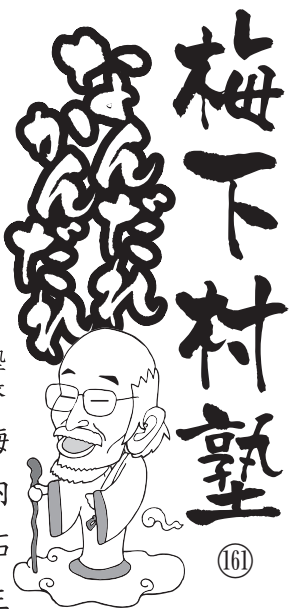 梅下村塾
161
なんだれ
かんだれ